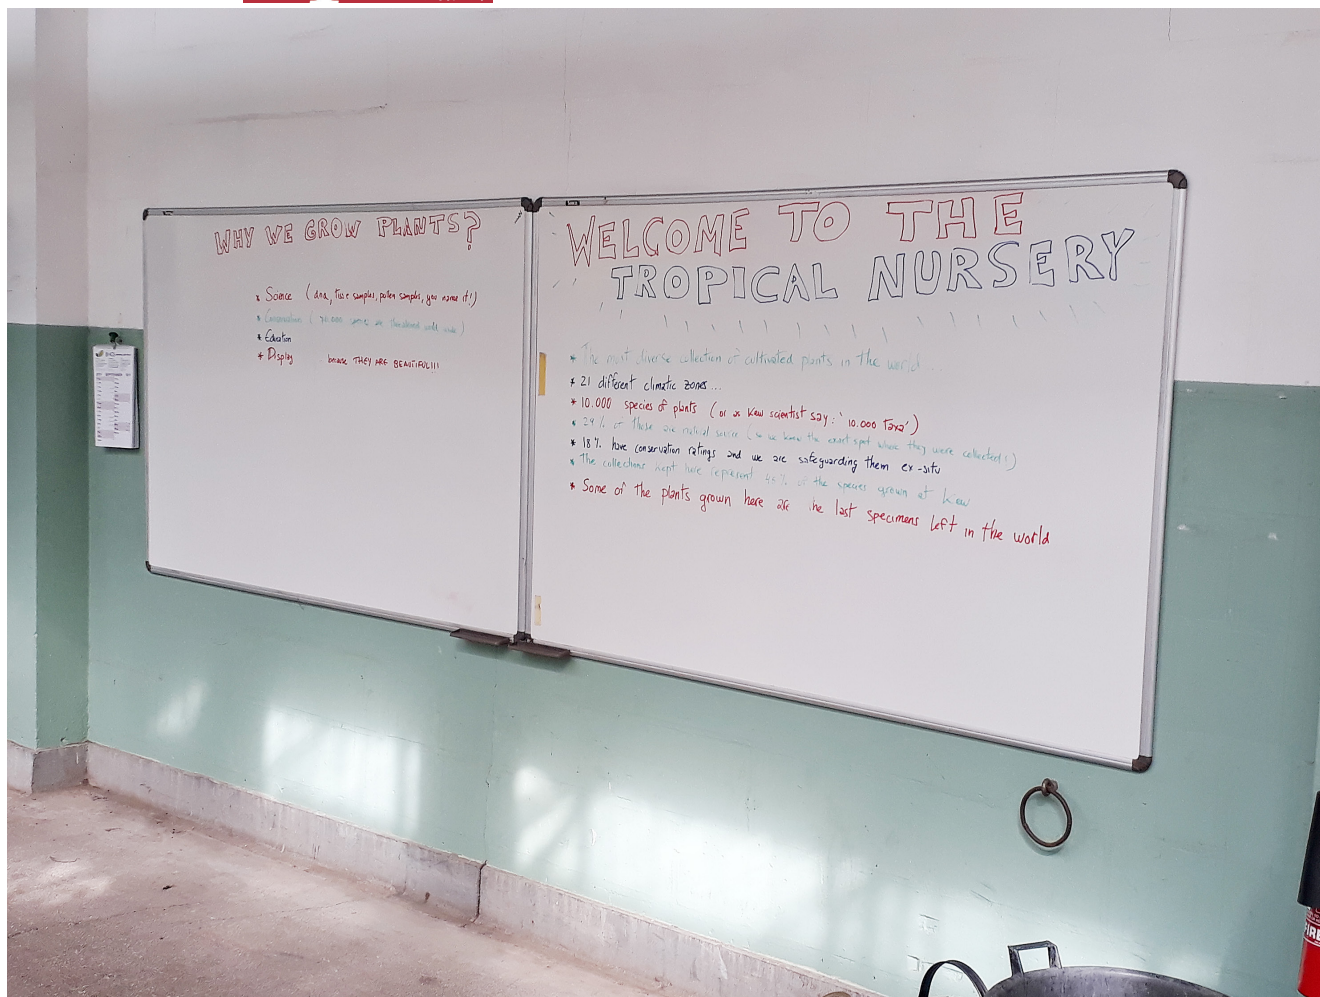 WHY WE GROW PLANTS?
* Science (dna, tissue samples, pollen samples, you name it!)
* Conservation ( are threatened world wide)
* Education
* Display because THEY ARE BEAUTIFUL!!!
WELCOME TO THE
TROPICAL NURSERY
* The most diverse collection of cultivated plants in the world...
* 21 different climatic zones...
* 10.000 species of plants (or as Kew scientist say: '10.000 taxa')
* 29% of those are natural source (so we know the exact spot where they were collected!)
* 18% have conservation ratings and we are safeguarding them ex-situ
* The collections kept here represent 45% of the species grown at Kew
* Some of the plants grown here are he last specimens left in the world